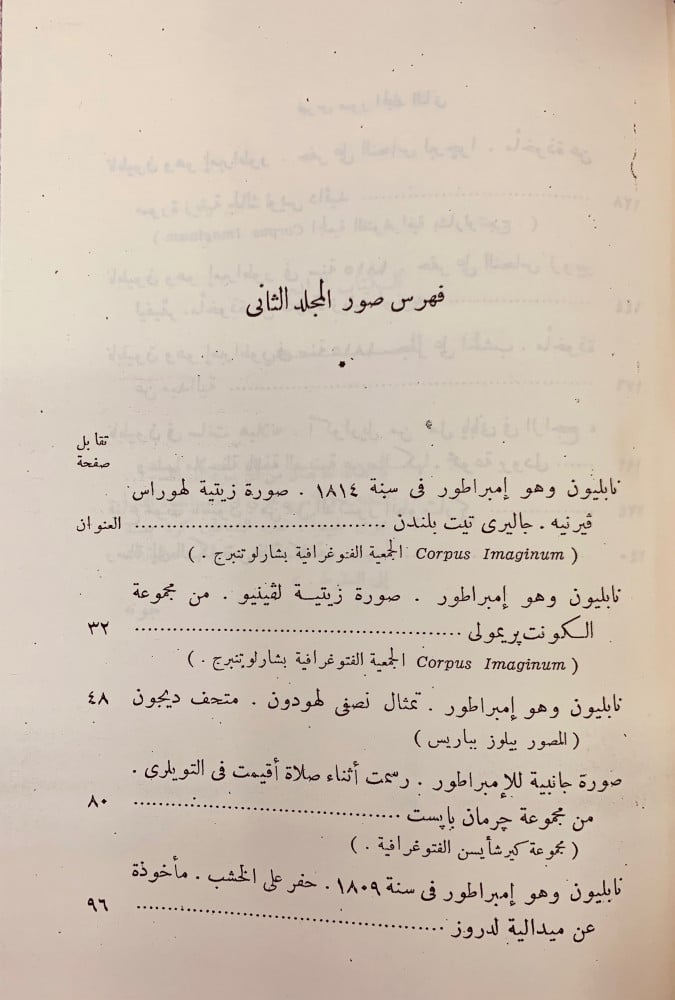 فهرس صور المجلد الثانى
تقابل
صفحة
نابليون وهو إمبراطور فى سنة ١٨١٤ . صورة زيتية لهوراس
ڤيرنيه . جاليرى تيت بلندن .................................... العنوان
( Corpus Imaginum الجمعية الفتوغرافية بشارلوتنبرج . )
نابليون وهو إمبراطور . صورة زيتيــة لڤينيو . من مجموعة
الكونت پريمولى .................................... ٣٢
( Corpus Imaginum الجمعية الفتوغرافية بشارلوتنبرج . )
نابليون وهو إمبراطور . تمثال نصفى لهودون . متحف ديجون ٤٨
( المصور بيلوز بباريس )
صورة جانبية للإمبراطور . رسمت أثناء صلاة أقيمت فى التويلرى .
من مجموعة چرمان باپست .................................... ٨٠
( مجموعة كيرشأيسن الفتوغرافية . )
نابليون وهو إمبراطور فى سنة ١٨٠٩ . حفر على الخشب . مأخوذة
عن ميدالية لدروز .................................... ٩٦